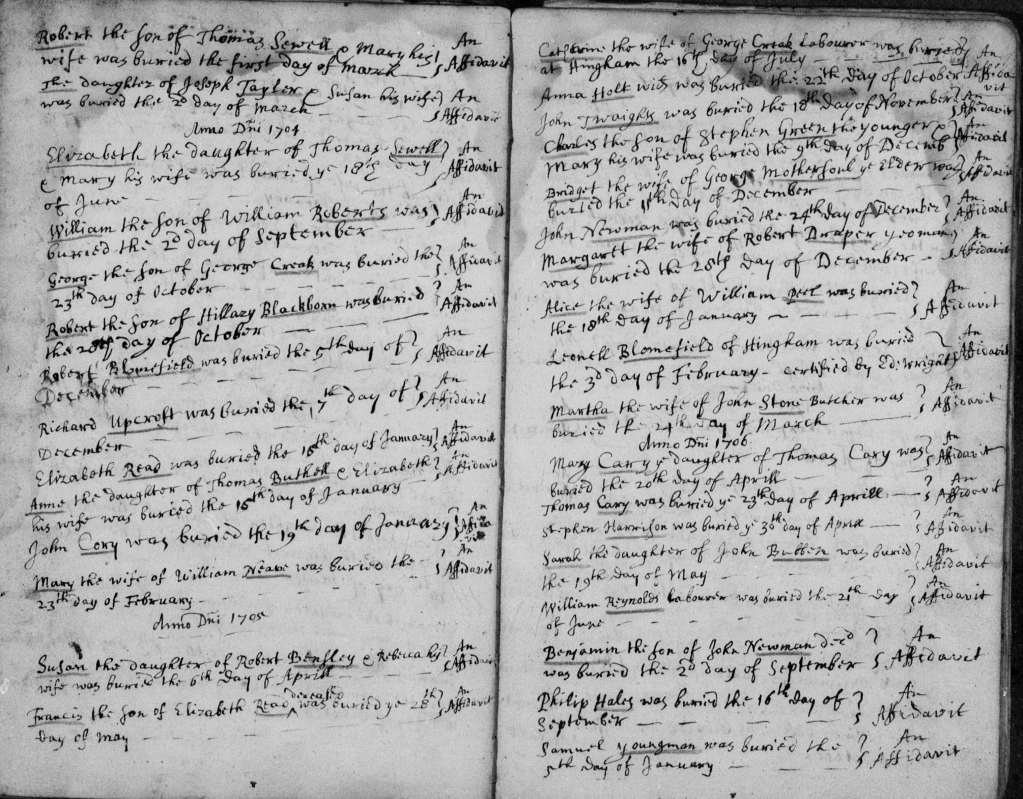 Robert the son of Thomas Sewell & Mary his } An
wife was buried the first day of March — } Affidavit
The daughter of Joseph Tayler & Susan his wife } An
was buried the 2d day of March — } Affidavit
Anno Dni 1704
Elizabeth the daughter of Thomas Sewell } An
& Mary his wife was buried ye 18th day } Affidavit
of June —
William the son of William Roberts was } An
buried the 2d day of September — } Affidavit
George the son of George Creak was buried the } An
23th day of October } Affidavit
Robert the son of Hillary Blackborn was buried } An
the 28th day of October — } Affidavit
Robert Blomefield was buried the 5th day of } An
December — } Affidavit
Richard Upcroft was buried the 7th day of } An
December — } Affidavit
Elizabeth Read was buried the 15th day of January } An Affidavit
Anne the daughter of Thomas Buthell & Elizabeth } An
his wife was buried the 15th day of January } Affidavit
John Cory was buried the 19th day of January } An Affidavit
Mary the wife of William Neave was buried the — } An
23th day of February — } Affidavit
Anno Dni 1705
Susan the daughter of Robert Bensley & Rebecca his } An
wife was buried the 6th day of Aprill } Affidavit
deceated
Francis the son of Elizabeth Read ^ was buried ye 28th } An
day of May — } Affidavit
Catherine the wife of George Creak Labourer was buried } An
at Hingham the 16th day of July — } Affidavit
Anna Holt wid was buried the 23th day of October } An Affidavit
John Twaights was buried the 18th day of November } An Affidavit
Charles the son of Stephen Green the younger & } An
Mary his wife was buried the 9th day of Decemb } Affidavit
Bridget the wife of George Mothersoul ye Elder was } An
buried the 15th day of December } Affidavit
John Newman was buried the 24th day of December } An Affidavit
Margarett the wife of Robert Draper yeoman } An
was buried the 28th day of December — } Affidavit
Alice the wife of William Peel was buried } An
the 18th day of January — } Affidavit
Leonell Blomefield of Hingham was buried } An
the 3d day of February — certified by Ed: Wright } Affidavit
Martha the wife of John Stone Butcher was } An
buried the 24th day of March — } Affidavit
Anno Dni 1706
Mary Cary ye daughter of Thomas Cory was } An
buried the 20th day of Aprill — } Affidavit
Thomas Cary was buried ye 23th day of Aprill — } An Affidavit
Stephen Harrison was buried ye 30th day of Aprill — } An Affidavit
Sarah the daughter of John Bullen was buried } An
the 19th day of May — } Affidavit
William Reynolds Labourer was buried the 21th day } An
of June — } Affidavit
Benjamin the son of John Newman decd } An
was buried the 2d day of September } Affidavit
Philip Hales was buried the 16th day of } An
September — } Affidavit
Samuel Youngman was buried the } An
5th day of January — } Affidavit